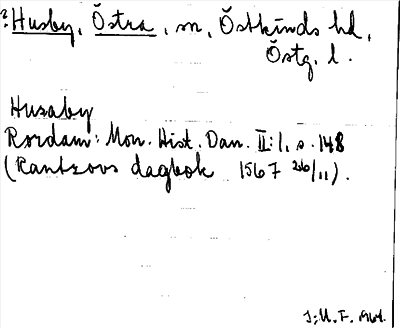 ? Husby, Östra, m, Östkinds hd,
Östg. l.
Husaby
Rørdam: Mon. Hist. Dan. II:1, s. 148
(Rantzovs dagbok 1567 26/11).